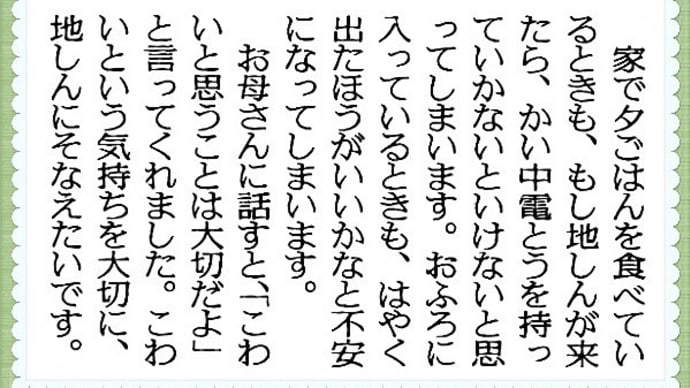 家で夕ごはんを食べてい
るときも、もし地しんが来
たら、かい中電とうを持っ
ていかないといけないと思
ってしまいます。おふろに
入っているときも、はやく
出たほうがいいかなと不安
になってしまいます。
お母さんに話すと、「こわ
いと思うことは大切だよ」
と言ってくれました。こわ
いという気持ちを大切に、
地しんにそなえたいです。